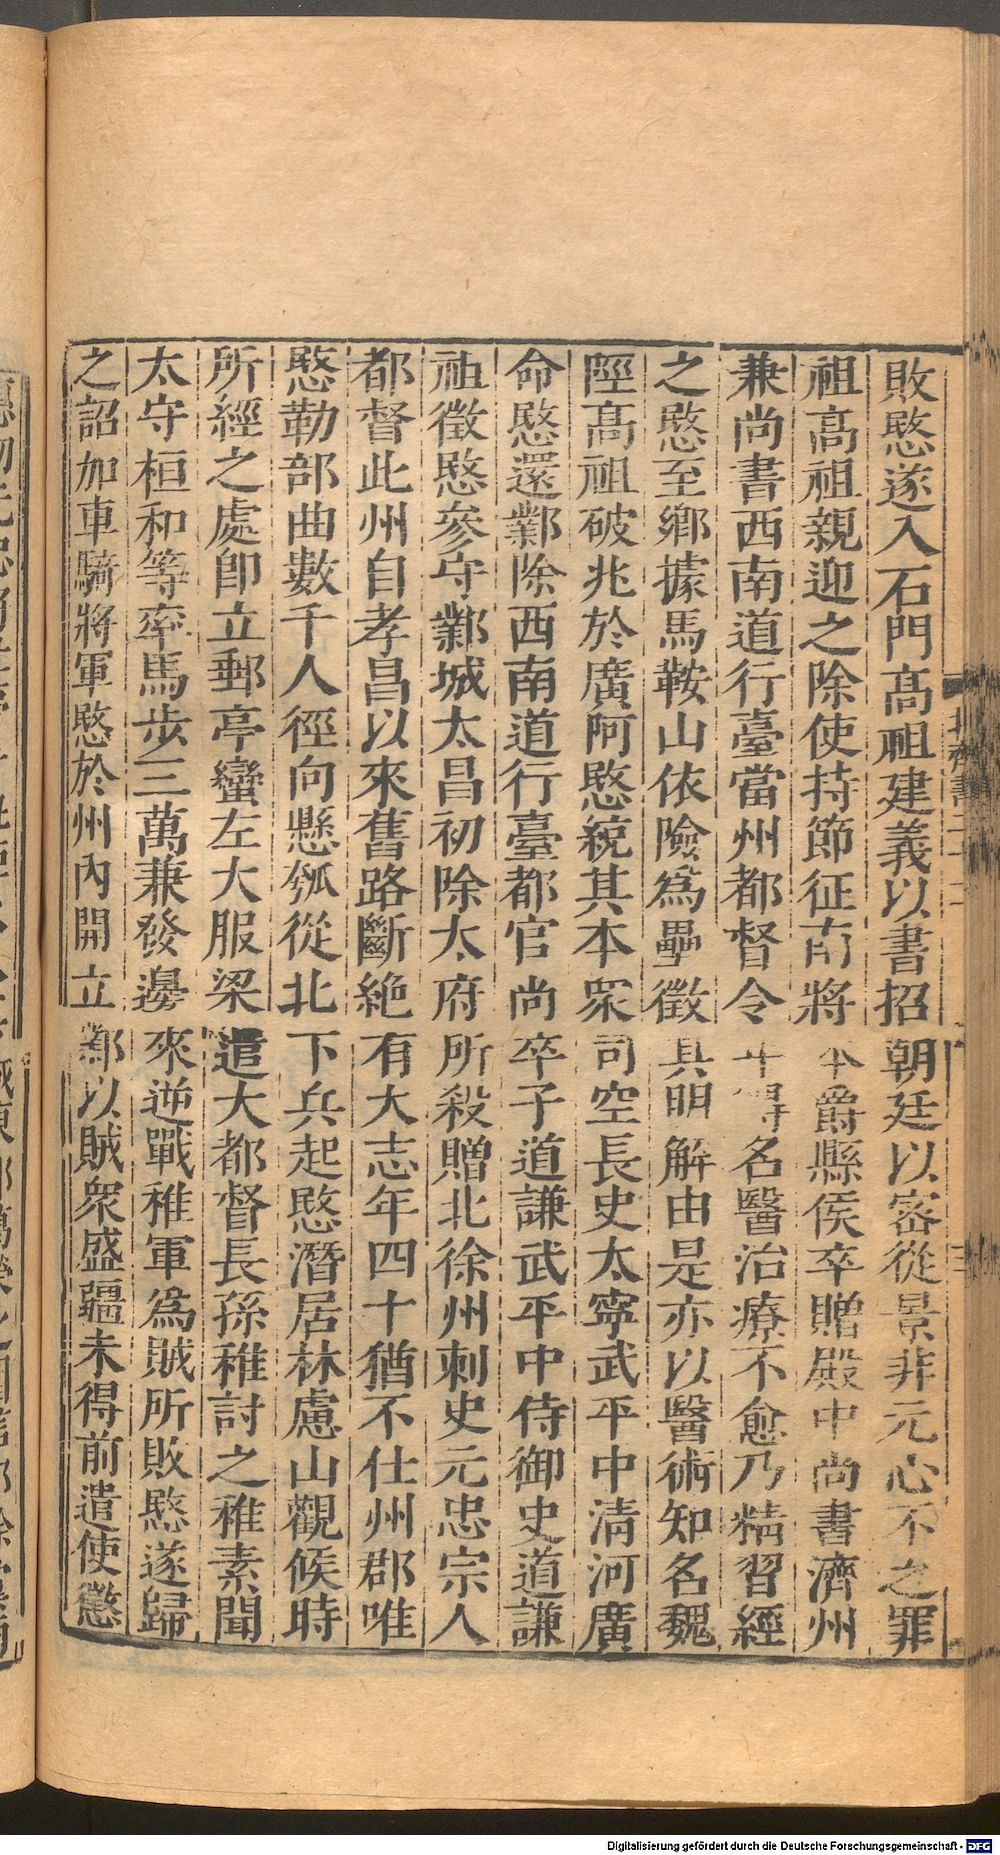 敗愍遂入石門高祖建義以書招朝廷以密從景非元心不之罪
祖高祖親迎之除使持節征南將本爵縣侯卒贈殿中尚書濟州
兼尚書西南道行臺當州都督令年得名醫治療不愈乃精習經
之愍至鄉據馬鞍山依險為壘徵其明解由是亦以醫術知名魏
陘高祖破兆於廣阿愍統其本眾司空長史太寧武平中清河廣
命愍還鄴除西南道行臺都官尚卒子道謙武平中侍御史道謙
祖徵愍參守鄴城太昌初除太府所殺贈北徐州刺史元忠宗人
都督此州自孝昌以來舊路斷絕有大志年四十猶不仕州郡唯
愍勒部曲數千人徑向懸瓠從北下兵起愍潛居林慮山觀候時
所經之處卽立郵亭蠻左大服梁遣大都督長孫稚討之稚素聞
太守桓和等率馬步三萬兼發邊來逆戰稚軍為賊所敗愍遂歸
之詔加車騎將軍愍於州內開立鄴以賊衆盛疆未得前遣使懲
Digitalisierung gefördert durch die Deutsche Forschungsgemeinschaft - DFG